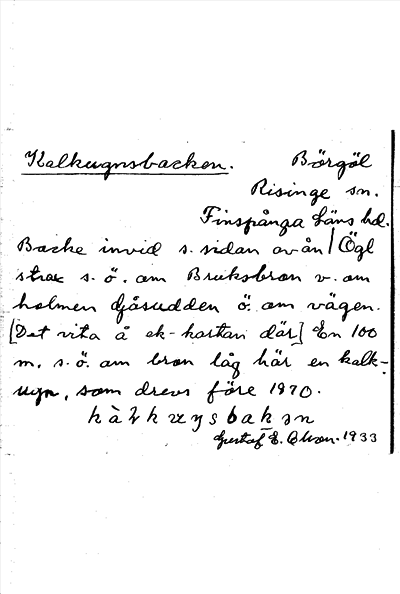 Kalkugnsbacken. Börgöl
Risinge sn.
Finspånga läns hd.
Backe invid s. sidan av ån Ögl
strax s. ö. om Bruksbron v. om
holmen Gåsudden ö. om vägen.
[Det vita å ek-kartan där] En 100
m. s. ö. om bron låg här en kalk-
ugn, som drevs före 1870.
Gustaf E. Olson. 1933